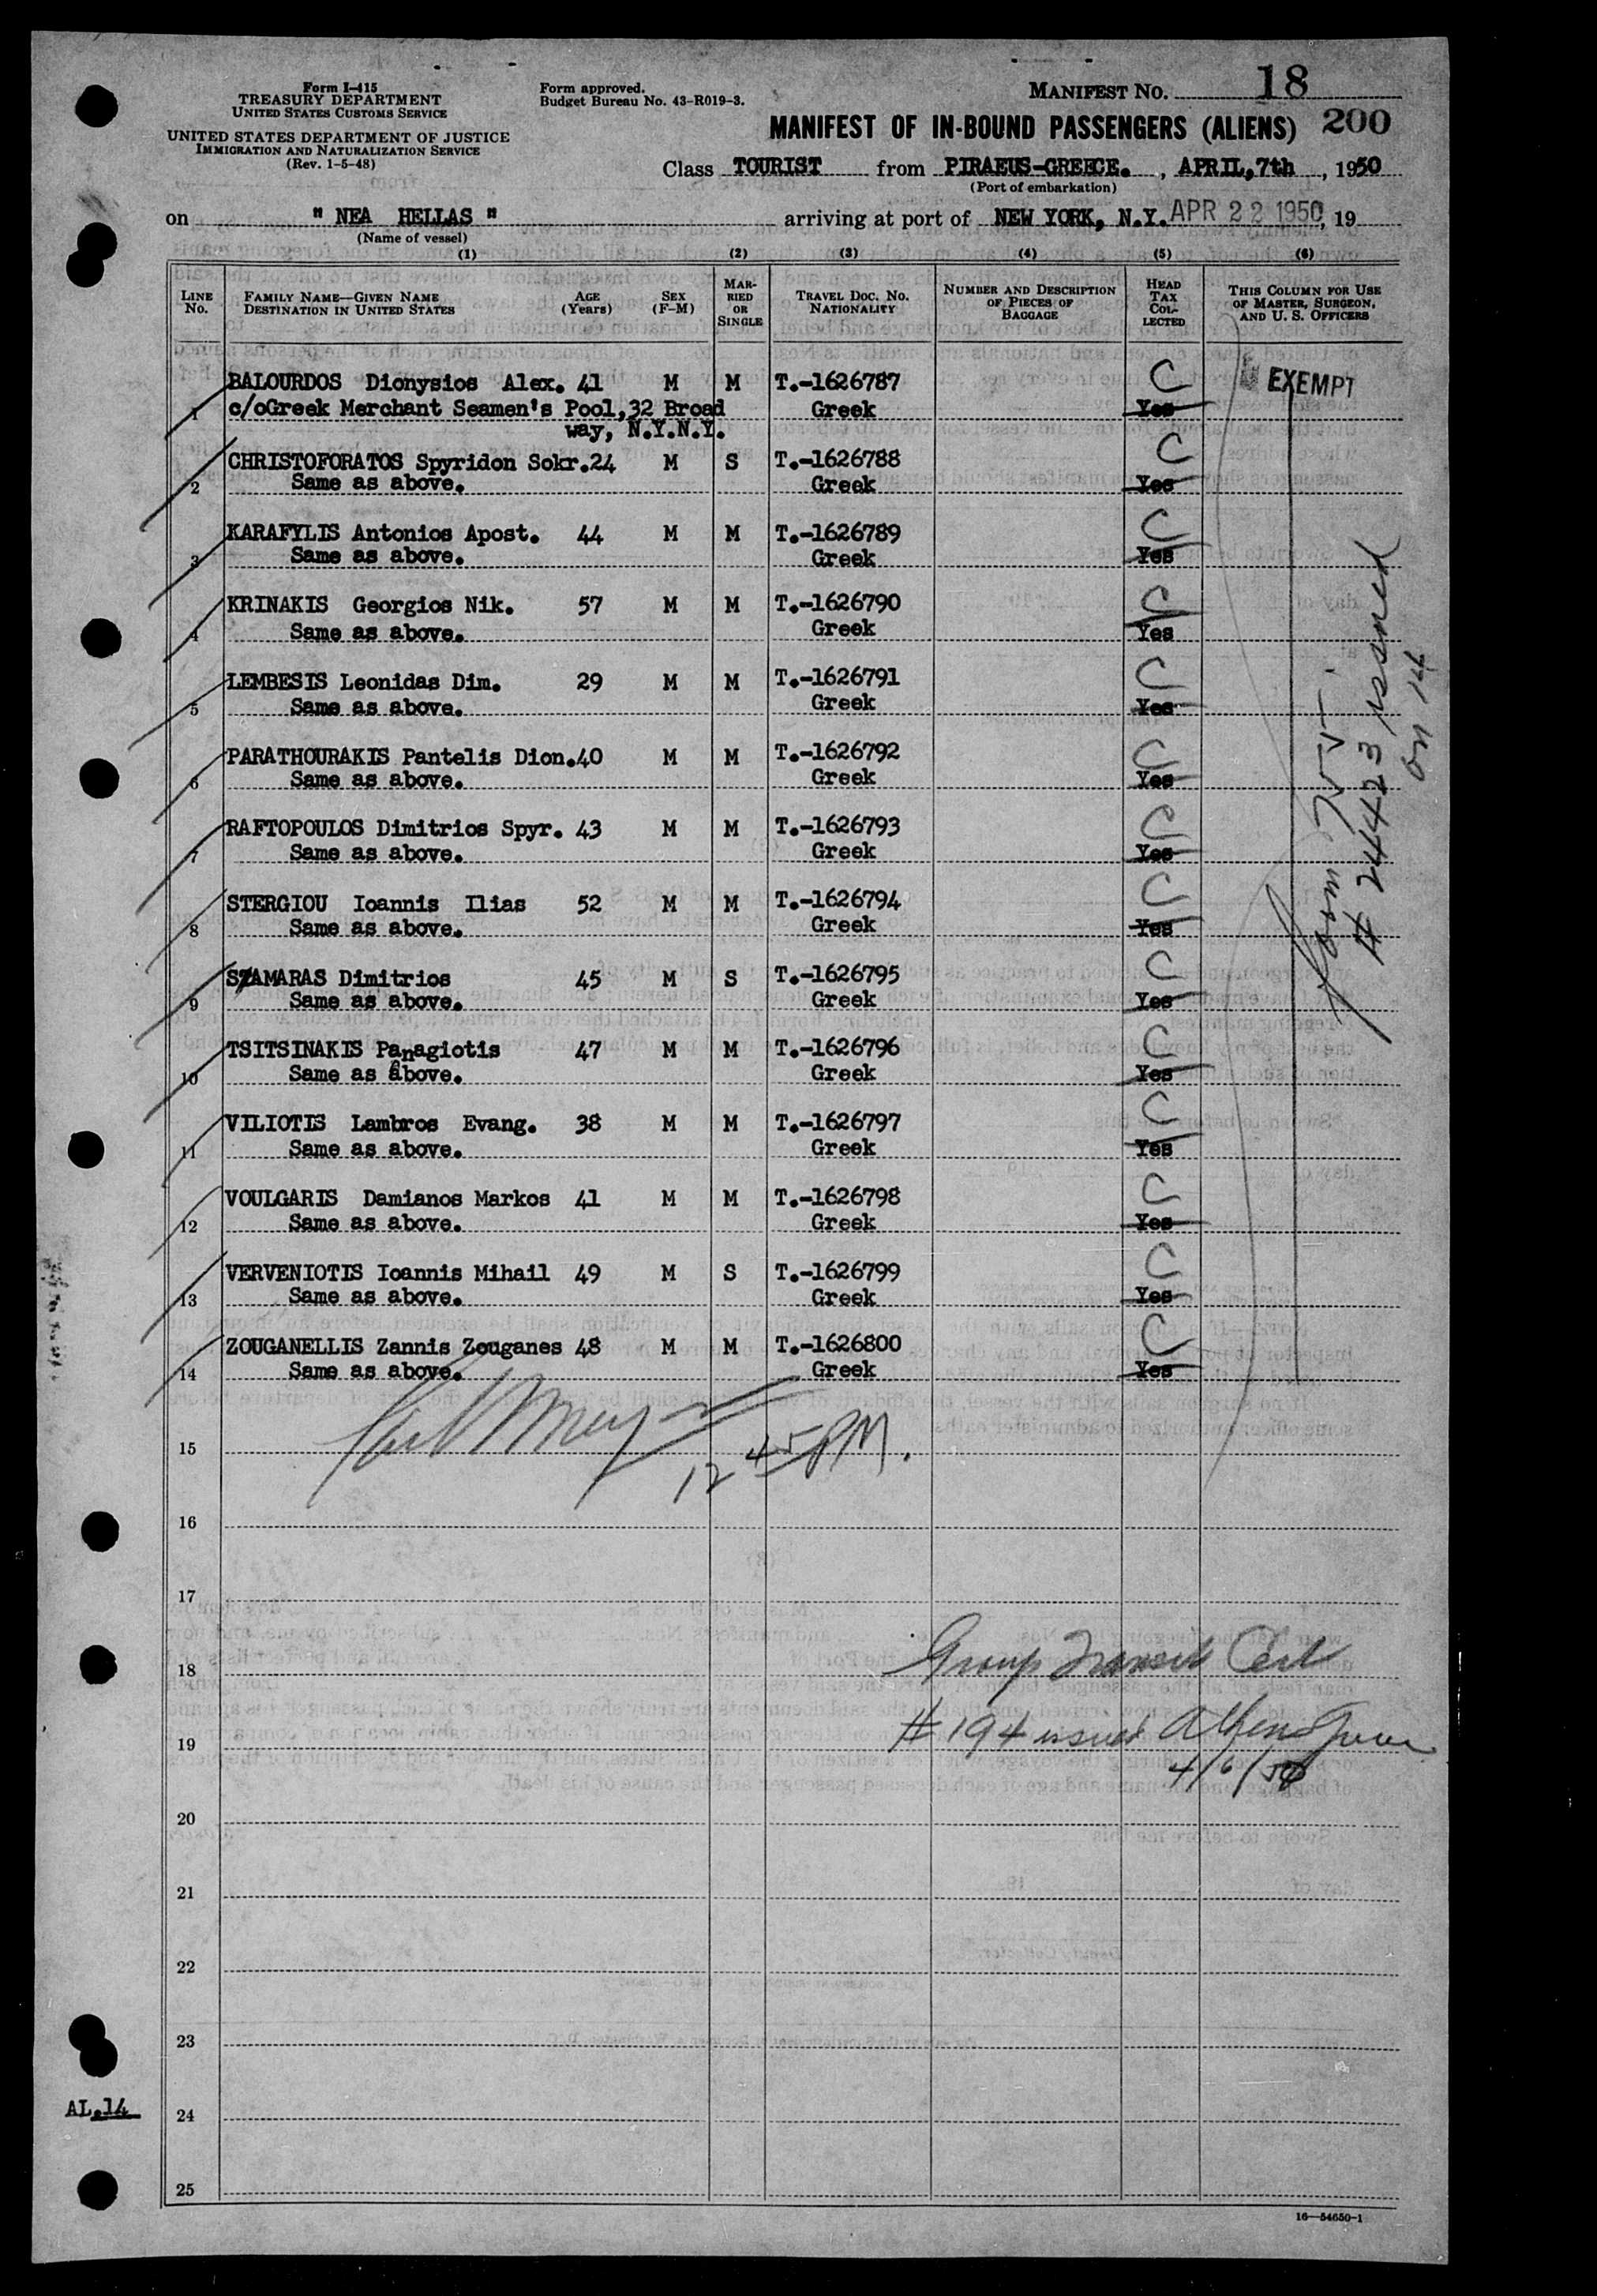 Form I-415
TREASURY DEPARTMENT
UNITED STATES CUSTOMS SERVICE
UNITED STATES DEPARTMENT OF JUSTICE
IMMIGRATION AND NATURALIZATION SERVICE
(Rev. 1-5-48)
Form approved.
Budget Bureau No. 43-R019-3.
MANIFEST NO. 18
MANIFEST OF IN-BOUND PASSENGERS (ALIENS) 200
Class TOURIST from PIRAEUS-GREECE. , APRIL,7th , 1950
(Port of embarkation)
on " NEA HELLAS " arriving at port of NEW YORK, N.Y. APR 22 1950, 19
(Name of vessel)
(1) (2) (3) (4) (5) (6)
LINE No. FAMILY NAME—GIVEN NAME DESTINATION IN UNITED STATES AGE (Years) SEX (F-M) MARRIED OR SINGLE TRAVEL DOC. NO. NATIONALITY NUMBER AND DESCRIPTION OF PIECES OF BAGGAGE HEAD TAX COLLECTED THIS COLUMN FOR USE OF MASTER, SURGEON, AND U. S. OFFICERS
BALOURDOS Dionysios Alex. 41 M M T.-1626787 C EXEMPT
1 c/oGreek Merchant Seamen's Pool,32 Broad Greek Yes
way, N.Y.N.Y.
CHRISTOFORATOS Spyridon Sokr.24 M S T.-1626788 C
2 Same as above. Greek Yes
KARAFYLIS Antonios Apost. 44 M M T.-1626789 C
3 Same as above. Greek Yes
KRINAKIS Georgios Nik. 57 M M T.-1626790 C
4 Same as above. Greek Yes
LEMBESIS Leonidas Dim. 29 M M T.-1626791 C
5 Same as above. Greek Yes
PARATHOURAKIS Pantelis Dion.40 M M T.-1626792 C
6 Same as above. Greek Yes
RAFTOPOULOS Dimitrios Spyr. 43 M M T.-1626793 C
7 Same as above. Greek Yes
STERGIOU Ioannis Ilias 52 M M T.-1626794 C
8 Same as above. Greek Yes
SAMARAS Dimitrios 45 M S T.-1626795 C
9 Same as above. Greek Yes
TSITSINAKIS Panagiotis 47 M M T.-1626796 C
10 Same as above. Greek Yes
VILIOTIS Lambros Evang. 38 M M T.-1626797 C
11 Same as above. Greek Yes
VOULGARIS Damianos Markos 41 M M T.-1626798 C
12 Same as above. Greek Yes
VERVENIOTIS Ioannis Mihail 49 M S T.-1626799 C
13 Same as above. Greek Yes
ZOUGANELLIS Zannis Zouganes 48 M M T.-1626800 C
14 Same as above. Greek Yes
Form
# 24423 issued
on 14
15
12 45 PM.
16
17
18 Group Transit Cert
19 # 194 issued Athens
4/6/50
20
21
22
23
24
AL.14
25
16—54650-1